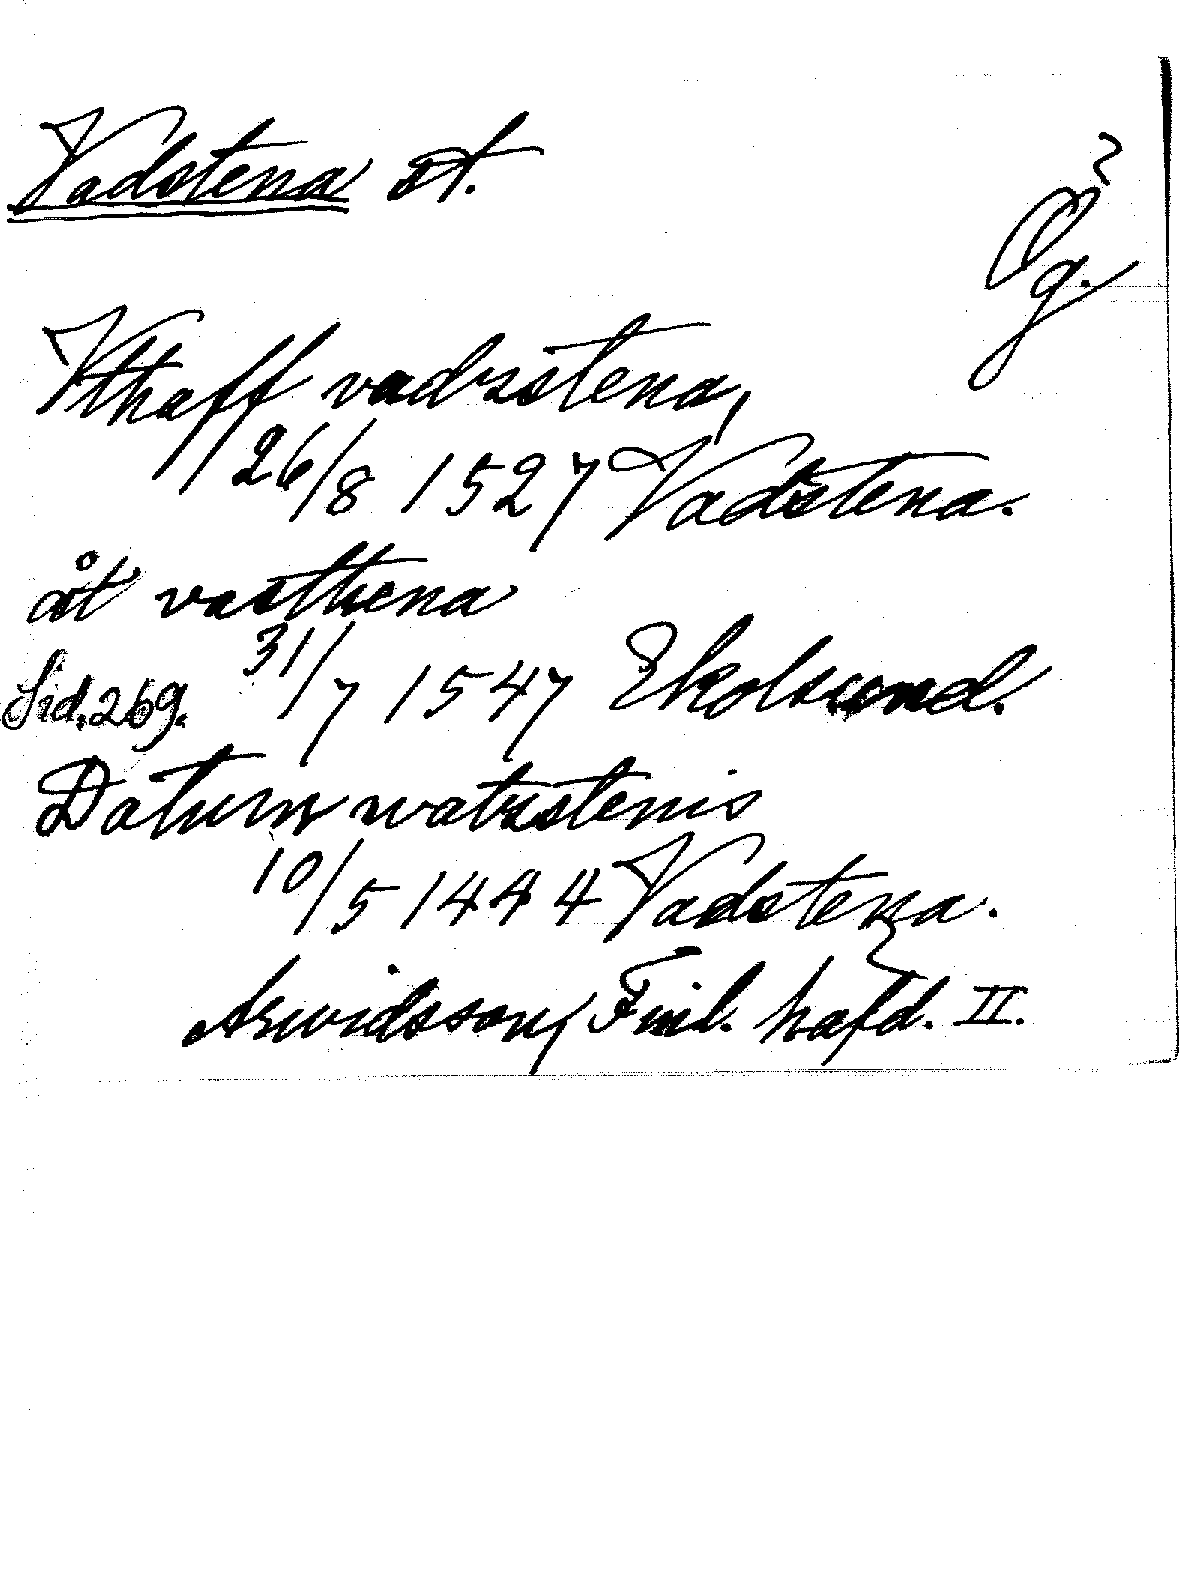 Vadstena st.
Ög.
Vthaff vadzstena,
26/8 1527 Vadstena.
åt vasthena
Sid. 269. 31/7 1547 Ekolsund.
Datum watzstenis
10/5 1444 Vadstena.
Arwidsson, Finl. häfd. II.